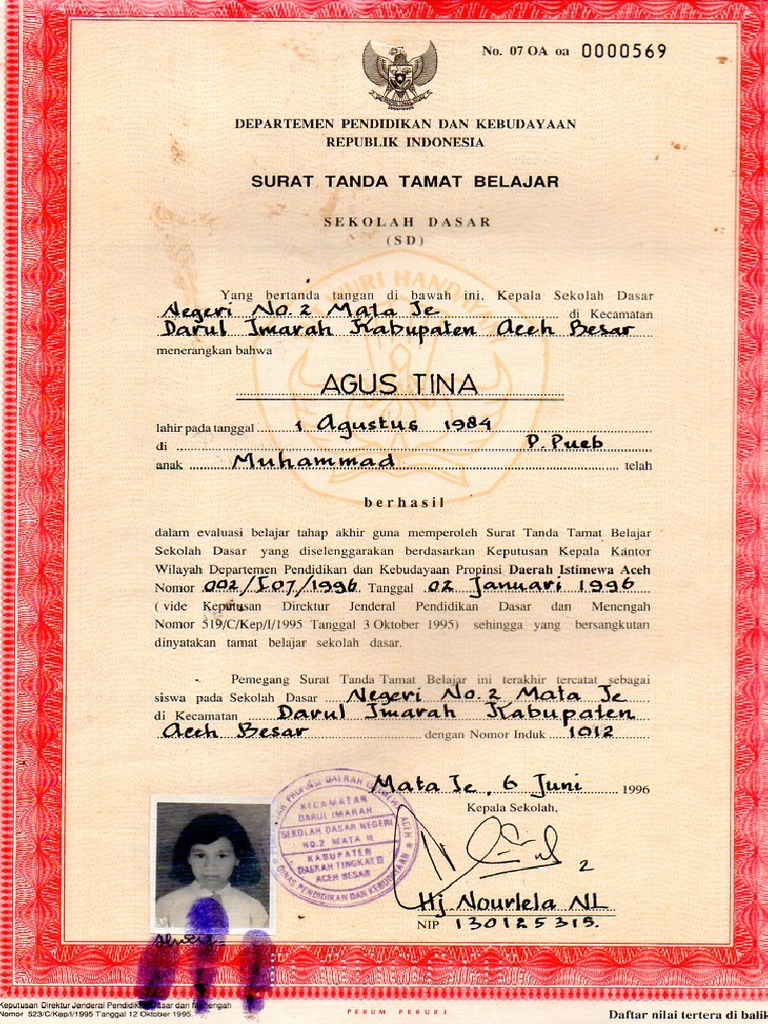 No. 07 OA oa 0000569
DEPARTEMEN PENDIDIKAN DAN KEBUDAYAAN
REPUBLIK INDONESIA
SURAT TANDA TAMAT BELAJAR
SEKOLAH DASAR
(SD)
Yang bertanda tangan di bawah ini, Kepala Sekolah Dasar
Negeri No. 2 Mata Je di Kecamatan
Darul Imarah Kabupaten Aceh Besar
menerangkan bahwa
AGUS TINA
lahir pada tanggal 1 Agustus 1984
di P. Pueb
anak Muhammad telah
berhasil
dalam evaluasi belajar tahap akhir guna memperoleh Surat Tanda Tamat Belajar
Sekolah Dasar yang diselenggarakan berdasarkan Keputusan Kepala Kantor
Wilayah Departemen Pendidikan dan Kebudayaan Propinsi Daerah Istimewa Aceh
Nomor 002/I07/1996 Tanggal 02 Januari 1996
( vide Keputusan Direktur Jenderal Pendidikan Dasar dan Menengah
Nomor 519/C/Kep/I/1995 Tanggal 3 Oktober 1995) sehingga yang bersangkutan
dinyatakan tamat belajar sekolah dasar.
Pemegang Surat Tanda Tamat Belajar ini terakhir tercatat sebagai
siswa pada Sekolah Dasar Negeri No. 2 Mata Je
di Kecamatan Darul Imarah Kabupaten
Aceh Besar dengan Nomor Induk 1012
Mata Je, 6 Juni 1996
Kepala Sekolah,
KECAMATAN
DARUL IMARAH
SEKOLAH DASAR NEGERI
NO. 2 MATA IE
KABUPATEN
DAERAH TINGKAT II
ACEH BESAR
DINAS PENDIDIKAN DAN KEBUDAYAAN
2
Hj Nourlela NL
NIP 130125315.
Keputusan Direktur Jenderal Pendidikan Dasar dan Menengah
Nomor 523/C/Kep/I/1995 Tanggal 12 Oktober 1995.
PERUM PERURI
Daftar nilai tertera di balik